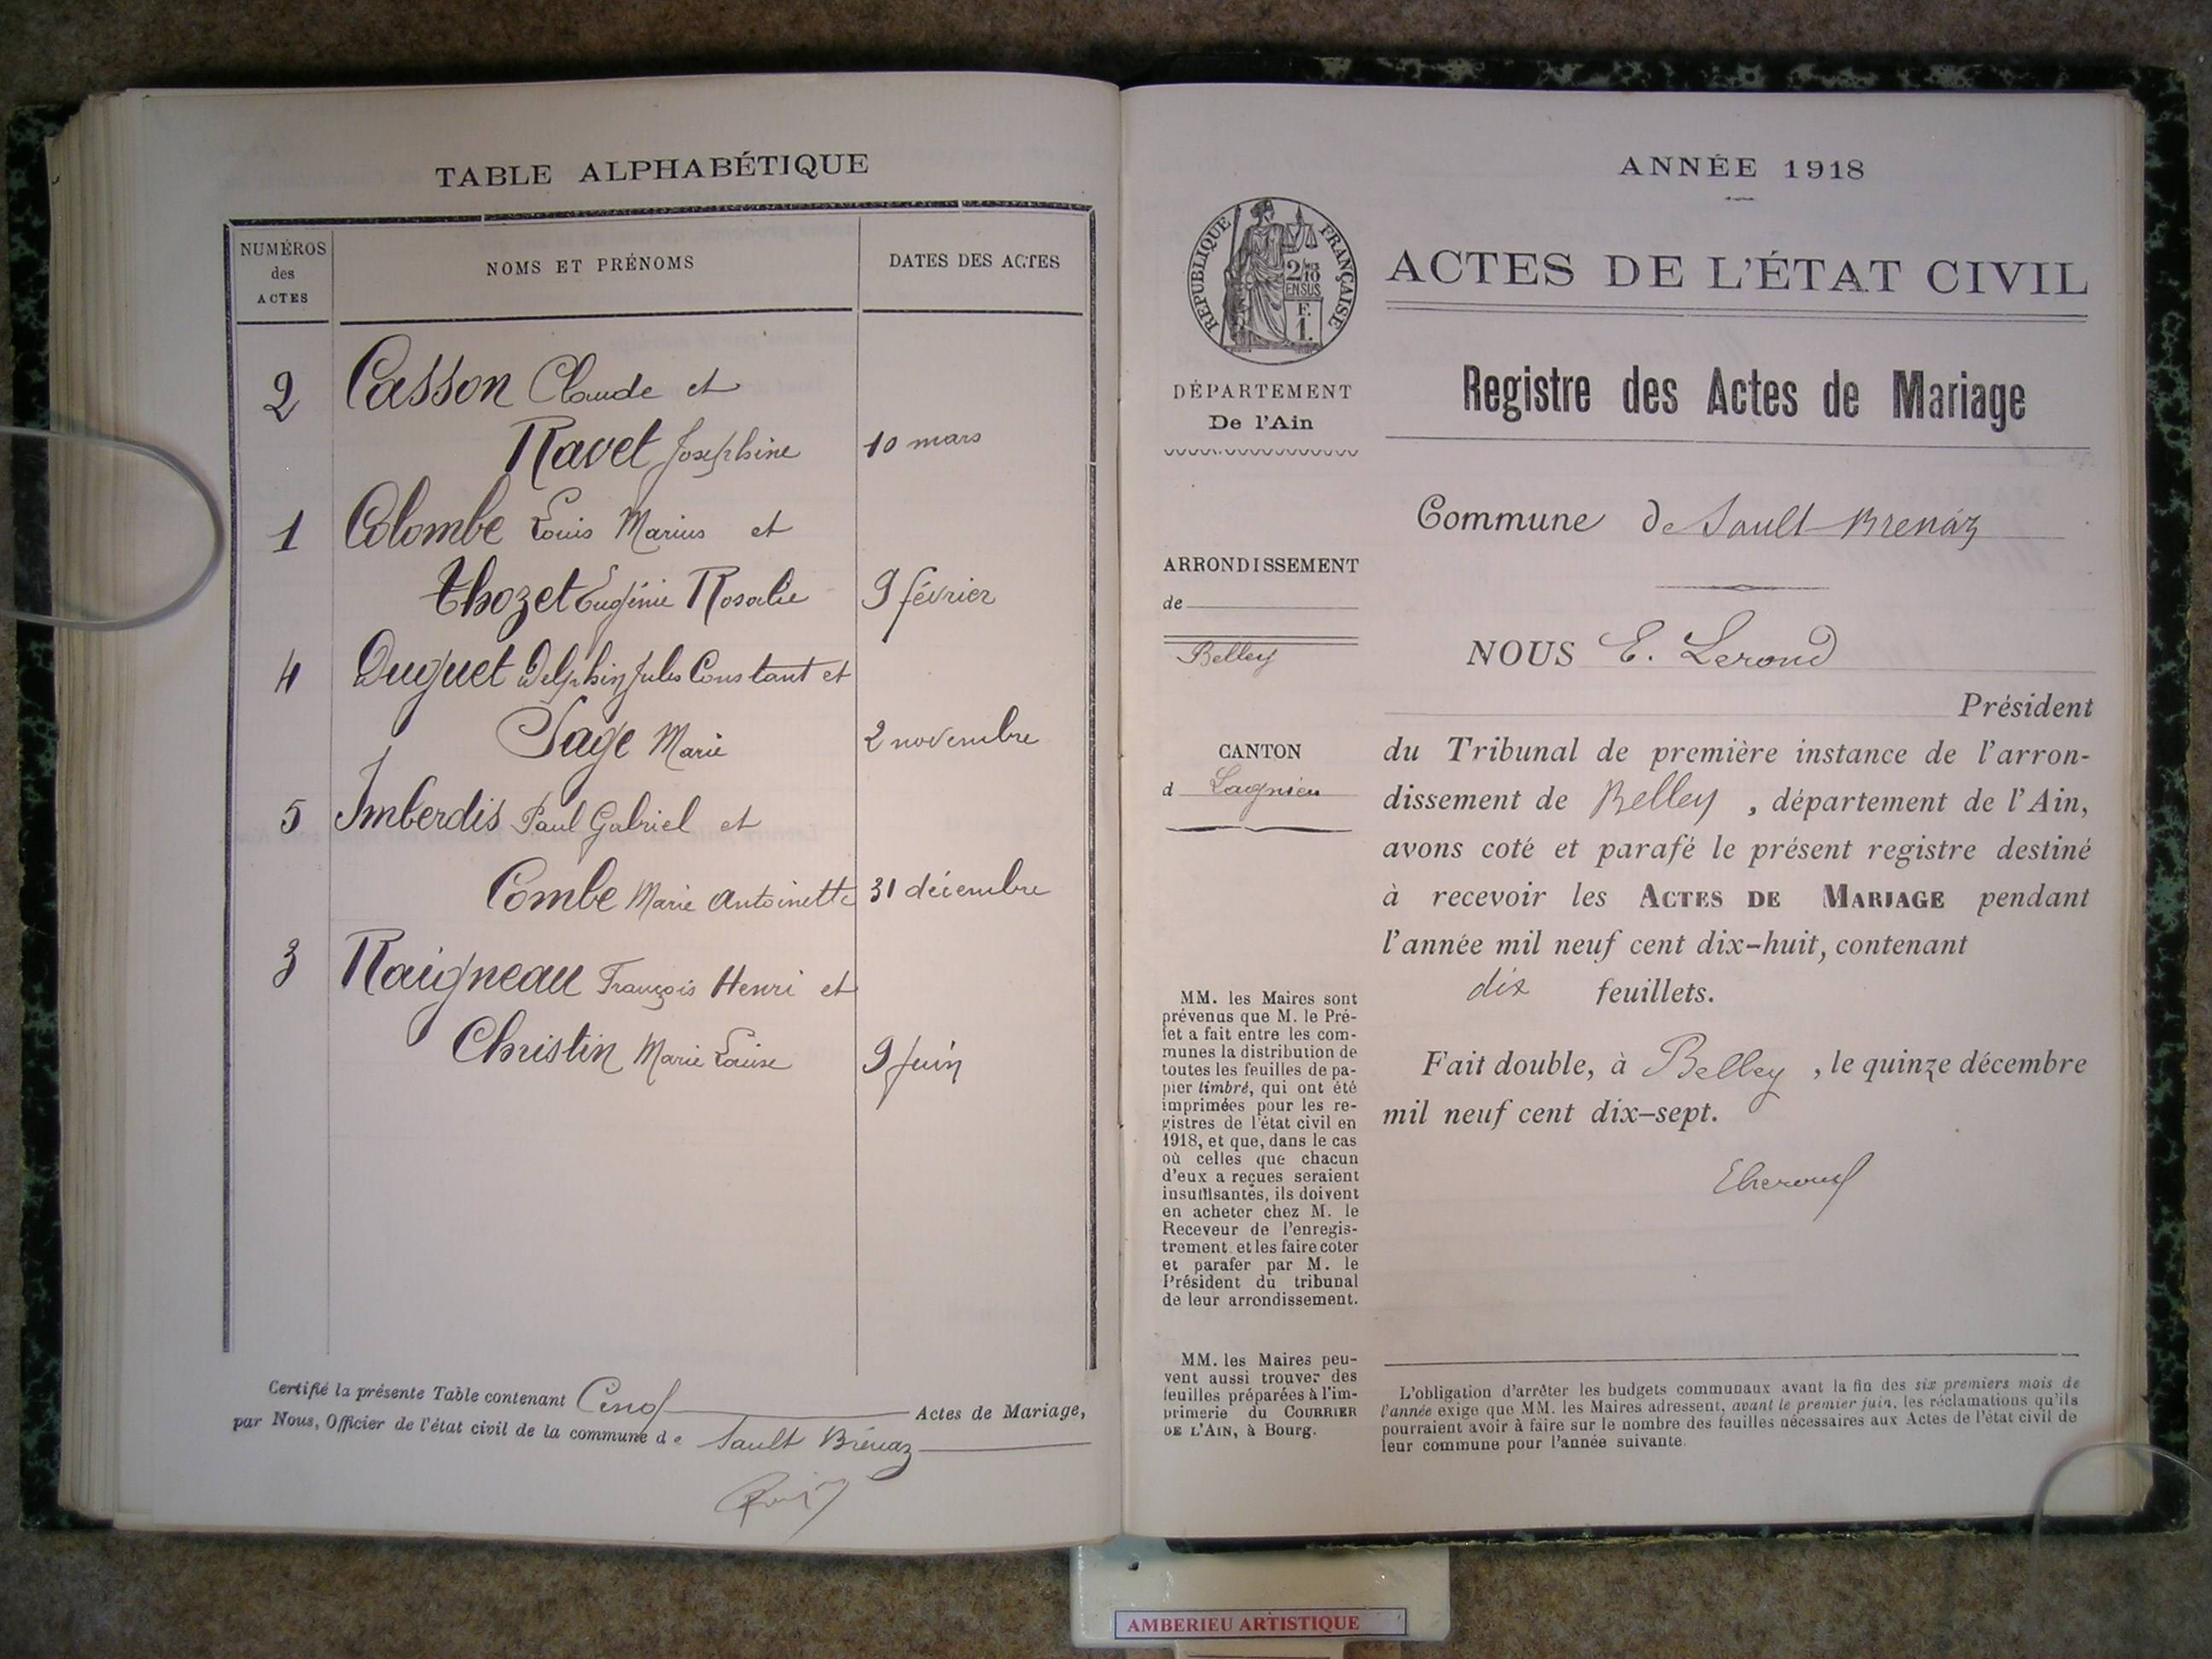 TABLE ALPHABÉTIQUE
NUMÉROS
des
ACTES
NOMS ET PRÉNOMS
DATES DES ACTES
2 Casson Claude et
Ravet Josephine 10 mars
1 Colombe Louis Marius et
Thozet Eugénie Rosalie 9 février
4 Duguet Delphin Jules Constant et
Sage Marie 2 novembre
5 Imberdis Paul Gabriel et
Combe Marie Antoinette 31 décembre
3 Raigneau François Henri et
Christin Marie Louise 9 Juin
Certifié la présente Table contenant Cinq Actes de Mariage,
par Nous, Officier de l'état civil de la commune de Sault Brénaz
ANNÉE 1918
RÉPUBLIQUE FRANÇAISE
2/10
EN SUS
F.
1.
ACTES DE L'ÉTAT CIVIL
DÉPARTEMENT
De l'Ain
Registre des Actes de Mariage
Commune de Sault-Brenaz
ARRONDISSEMENT
de
Belley
NOUS E. Lerond
Président
CANTON
d Lagnieu
du Tribunal de première instance de l'arron-
dissement de Belley , département de l'Ain,
avons coté et parafé le présent registre destiné
à recevoir les ACTES DE MARIAGE pendant
l'année mil neuf cent dix-huit, contenant
dix feuillets.
Fait double, à Belley , le quinze décembre
mil neuf cent dix-sept.
MM. les Maires sont
prévenus que M. le Pré-
fet a fait entre les com-
munes la distribution de
toutes les feuilles de pa-
pier timbré, qui ont été
imprimées pour les re-
gistres de l'état civil en
1918, et que, dans le cas
où celles que chacun
d'eux a reçues seraient
insuffisantes, ils doivent
en acheter chez M. le
Receveur de l'enregis-
trement et les faire coter
et parafer par M. le
Président du tribunal
de leur arrondissement.
MM. les Maires peu-
vent aussi trouver des
feuilles préparées à l'im-
primerie du COURRIER
DE L'AIN, à Bourg.
L'obligation d'arrêter les budgets communaux avant la fin des six premiers mois de
l'année exige que MM. les Maires adressent, avant le premier juin, les réclamations qu'ils
pourraient avoir à faire sur le nombre des feuilles nécessaires aux Actes de l'état civil de
leur commune pour l'année suivante.
AMBERIEU ARTISTIQUE